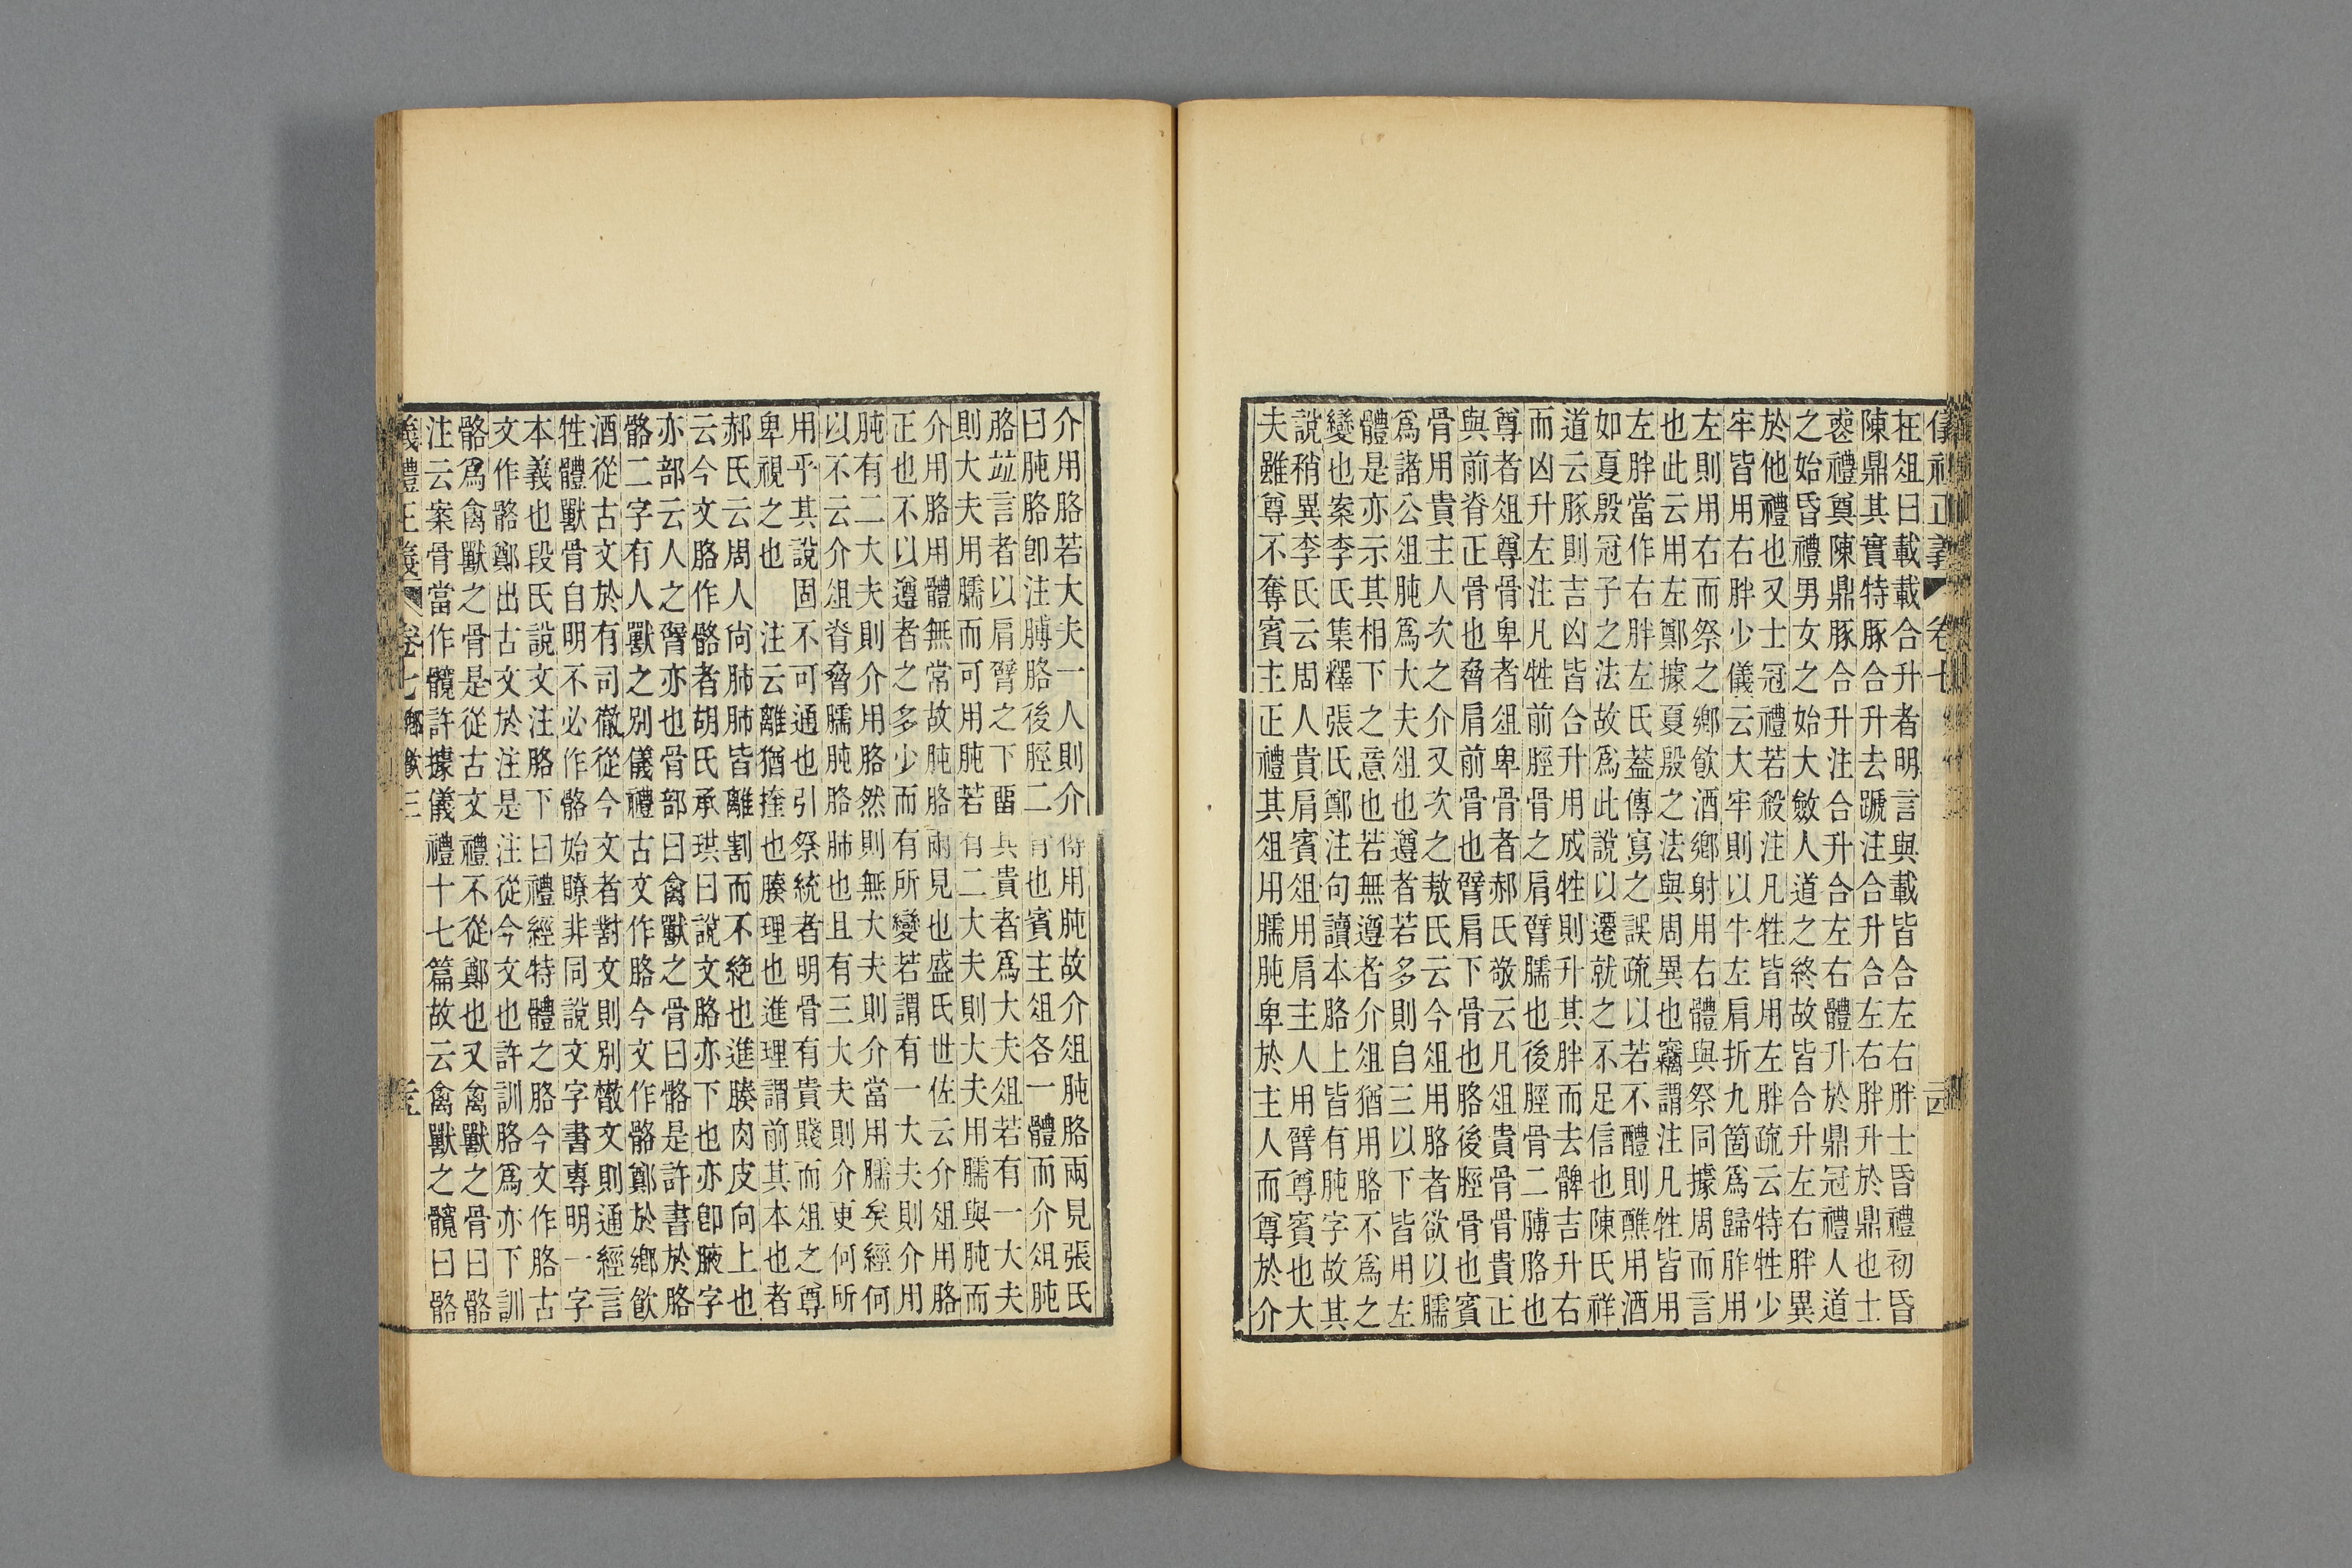 儀禮正義 卷七
在俎曰載載合升者明言與載皆合左右胖士昏禮初昏
陳鼎其實特豚合升去蹏注合升合左右胖升於鼎也士
喪禮奠陳鼎豚合升注合升合左右體升於鼎冠禮人道
之始昏禮男女之始大斂人道之終故皆合升左右胖異
於他禮也又士冠禮若殺注凡牲皆用左胖疏云特牲少
牢皆用右胖少儀云大牢則以牛左肩折九箇爲歸胙用
左則用右而祭之鄉飲酒鄉射用右體與祭同據周而言
也此云用左鄭據夏殷之法與周異也竊謂注凡牲皆用
左胖當作右胖左氏蓋傳寫之誤疏以若不醴則醮用酒
如夏殷冠子之法故爲此說以遷就之不足信也陳氏祥
道云豚則吉凶皆合升用成牲則升其胖而去髀吉升右
而凶升左注凡牲前脛骨之肩臂臑也後脛骨二膊胳也
尊者俎尊骨卑者俎卑骨者郝氏敬云凡俎貴骨骨貴正
與前脊正骨也脅肩前骨也臂肩下骨也胳後脛骨也賓
骨用貴主人次之介又次之敖氏云今俎用胳者欲以臑
爲諸公俎肫爲大夫俎也遵者若多則自三以下皆用左
體是亦示其相下之意也若無遵者介俎猶用胳不爲之
變也案李氏集釋張氏鄭注句讀本胳上皆有肫字故其
說稍異李氏云周人貴肩賓俎用肩主人用臂尊賓也大
夫雖尊不奪賓主正禮其俎用臑肫卑於主人而尊於介
介用胳若大夫一人則介得用肫故介俎肫胳兩見張氏
曰肫胳卽注膊胳後脛二骨也賓主俎各一體而介俎肫
胳竝言者以肩臂之下畱其貴者爲大夫俎若有一大夫
則大夫用臑而可用肫若有二大夫則大夫用臑與肫而
介用胳用體無常故肫胳兩見也盛氏世佐云介俎用胳
正也不以遵者之多少而有所變若謂有一大夫則介用
肫有二大夫則介用胳然則無大夫則介當用臑矣經何
以不云介俎脊脅臑肫胳肺也且有三大夫則介更何所
用乎其說固不可通也引祭統者明骨有貴賤而俎之尊
卑視之也 注云離猶㨔也腠理也進理謂前其本也者
郝氏云周人尚肺肺皆離割而不絕也進腠肉皮向上也
云今文胳作骼者胡氏承珙曰說文胳亦下也亦卽腋字
亦部云人之臂亦也骨部曰禽獸之骨曰骼是許書於胳
骼二字有人獸之別儀禮古文作胳今文作骼鄭於鄉飲
酒從古文於有司徹從今文者對文則別散文則通經言
牲體獸骨自明不必作骼始瞭非同說文字書專明一字
本義也段氏說文注胳下曰禮經特體之胳今文作胳古
文作骼鄭出古文於注是注從今文也許訓胳爲亦下訓
骼爲禽獸之骨是從古文禮不從鄭也又禽獸之骨曰骼
注云案骨當作髖許據儀禮十七篇故云禽獸之髖曰骼
儀禮正義 卷七 鄉飲三